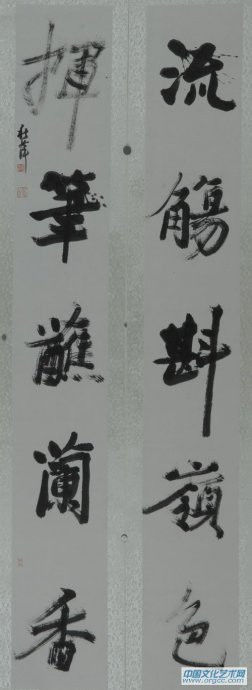 流觴斟嶺色
揮筆蘸蘭香
中国文化艺术网
www.orgcc.com